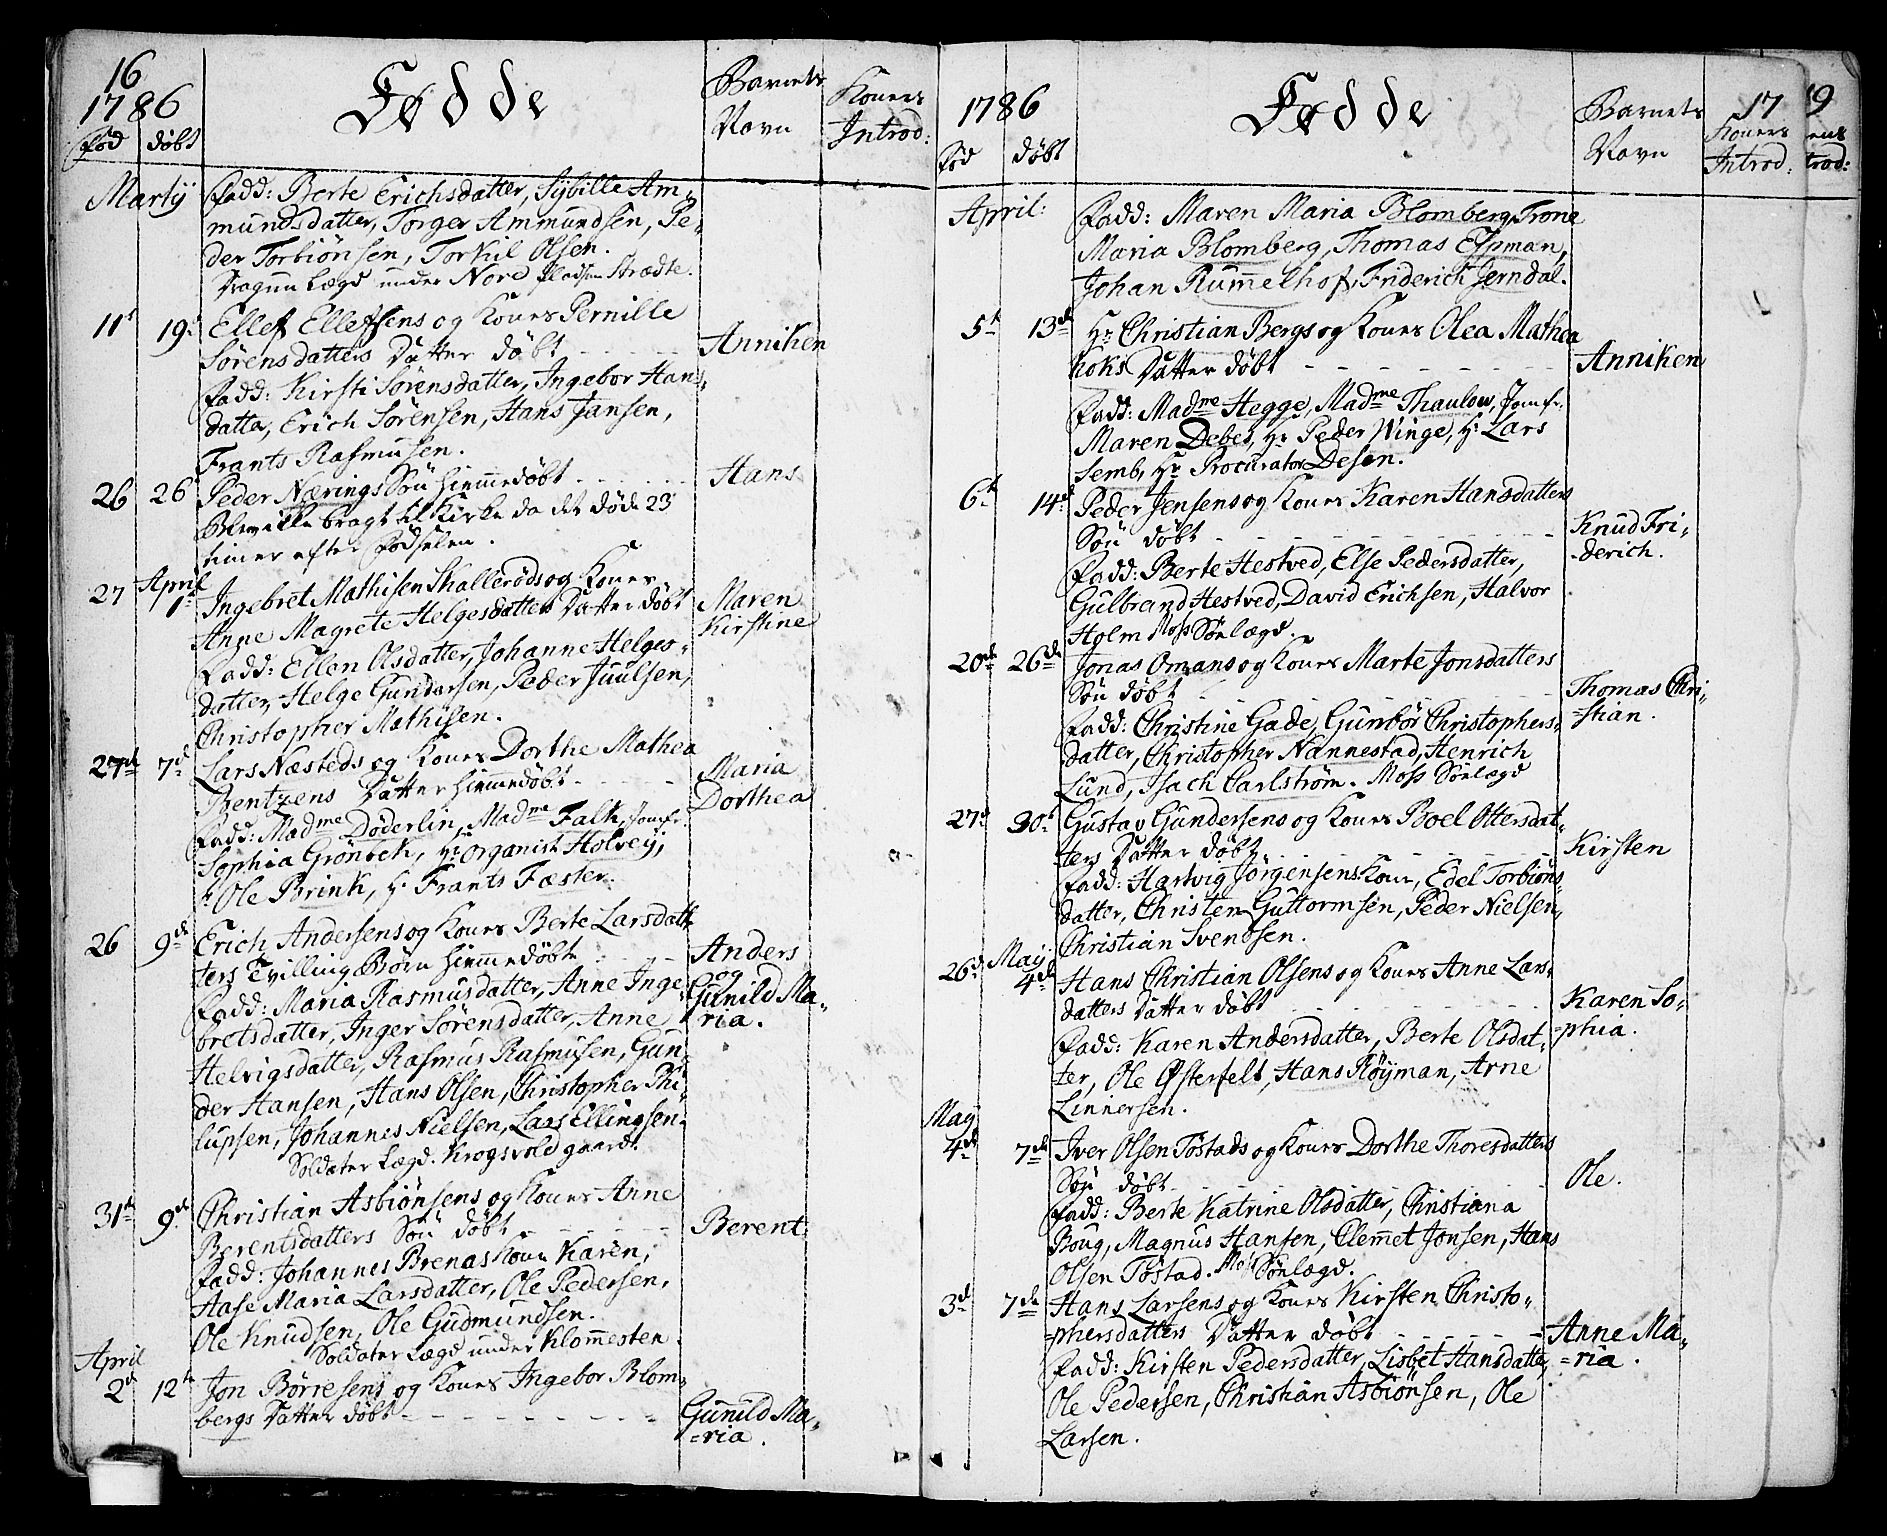 16
1786
Fødde
Barnets
Navn
Koners
Introd:
fød
døbt
Martij
Fadd: Berte Erichsdatter, Sybille Am-
mundsdatter, Torger Ammundsen, Pe-
der Torbiönsen, Torkil Olsen.
Dragun Lægd under Nord pladsen Strædte.
11t 19d Ellef Ellefsens og Kones Pernille
Sörensdatters Datter døbt - - - - Anniken
Fadd: Kirsti Sörensdatter, Ingebor Hans-
datter, Erich Sörensen, Hans Jansen,
Frants Rasmusen.
26 26 Peder Nærings Sön hiemmedøbt - - - - Hans
Blev ikke bragt til Kirke da det døde 23
timer efter Fødselen.
27 April 1t Ingebret Mathisen Skallerøds og Kones
Anne Magrete Helgesdatters Datter døbt Maren
Kirstine
Fadd: Ellen Olsdatter, Johanne Helges-
datter, Helge Gundersen, Peder Juulsen,
Christopher Mathisen.
27de 7de Lars Næsteds og Kones Dorthe Mathea
Bentzens Datter hiemmedøbt - - - - Maria
Dorthea
Fadd: Madme Døderlin, Madme Falk, Jomfr.
Sophia Grönbek, Hr Organist Holvey,
Hr Ole Brink, Hr Frants Fæster.
26 9de Erich Andersens og Kones Berte Larsdat-
ters Tvilling Børn hiemmedøbt - - Anders
og
Gunild Ma-
ria.
Fadd: Maria Rasmusdatter, Anne Inge-
bretsdatter, Inger Sörensdatter, Anne
Helvigsdatter, Rasmus Rasmusen, Gun-
der Hansen, Hans Olsen, Christopher Phi-
lupsen, Johannes Nielsen, Lars Ellingsen.
Soldater Lægd. Krogsvold gaard.
31t 9de Christian Asbiönsens og Kones Anne
Berentsdatters Sön døbt - - - - Berent.
Fadd: Johannes Brenas Kone Karen,
Aase Maria Larsdatter, Ole Pedersen,
Ole Knudsen, Ole Gudmundsen.
Soldater Lægd under Klommesten.
April
2d 12te Jon Börresens og Kones Ingebor Blom-
bergs Datter døbt - - - - Gunild Ma-
=ria.
1786
Fødde
Barnets
Navn
17
Koners
Introd:
19
ens
trod:
fød
døbt
April:
Fadd: Maren Maria Blomberg, Trone
Maria Blomberg, Thomas Elpman,
Johan Rummelhof, Friderich Jerndal.
5t 13de Hr Christian Bergs og Kones Olea Mathea
Koks Datter døbt - - - - Anniken
Fadd: Madme Hegge, Madme Thaulow, Jomfr.
Maren Debes, Hr Peder Winge, Hr Lars
Semb, Hr Procurator Desen.
6t 14de Peder Jensens og Kones Karen Hansdatters
Sön døbt - - - - Knud Fri-
=derich.
Fadd: Berte Hestved, Else Pedersdatter,
Gulbrand Hestved, David Erichsen, Halvor
Holm Moss Sönlægd.
20de 26de Jonas Omans og Kones Marte Jonsdatters
Sön døbt - - - - Thomas Chri-
=stian.
Fadd: Christine Gade, Gunbör Christophers-
datter, Christopher Nannestad, Henrich
Lund, Isach Carlström. Moss Sönlægd
27d 30t Gustav Gundersens og Kones Boel Ottersdat-
ters Datter døbt - - - - Kirsten
Fadd: Hartvig Jörgensens Kone, Edel Torbiöns-
datter, Christen Guttormsen, Peder Nielsen,
Christian Svendsen.
26d Maij 4de Hans Christian Olsens og Kones Anne Lars-
datters Datter døbt - - - - Karen So-
=phia.
Fadd: Karen Andersdatter, Berte Olsdat-
ter, Ole Østerfelt, Hans Röijman, Arne
Linnersen.
Maij
4de 7de Iver Olsen Töstads og Kones Dorthe Thoresdatters
Sön døbt - - - - Ole.
Fadd: Berte Katrine Olsdatter, Christiana
Boug, Magnus Hansen, Clemmet Jonsen, Hans
Olsen Töstad. Moss Sönlægd.
3d 7de Hans Larsens og Kones Kirsten Christo-
=phersdatters Datter døbt - - - - Anne Ma-
=ria.
Fadd: Kirsten Pedersdatter, Lisbet Hansdatter,
Ole Pedersen, Christian Asbiönsen, Ole
Larsen.